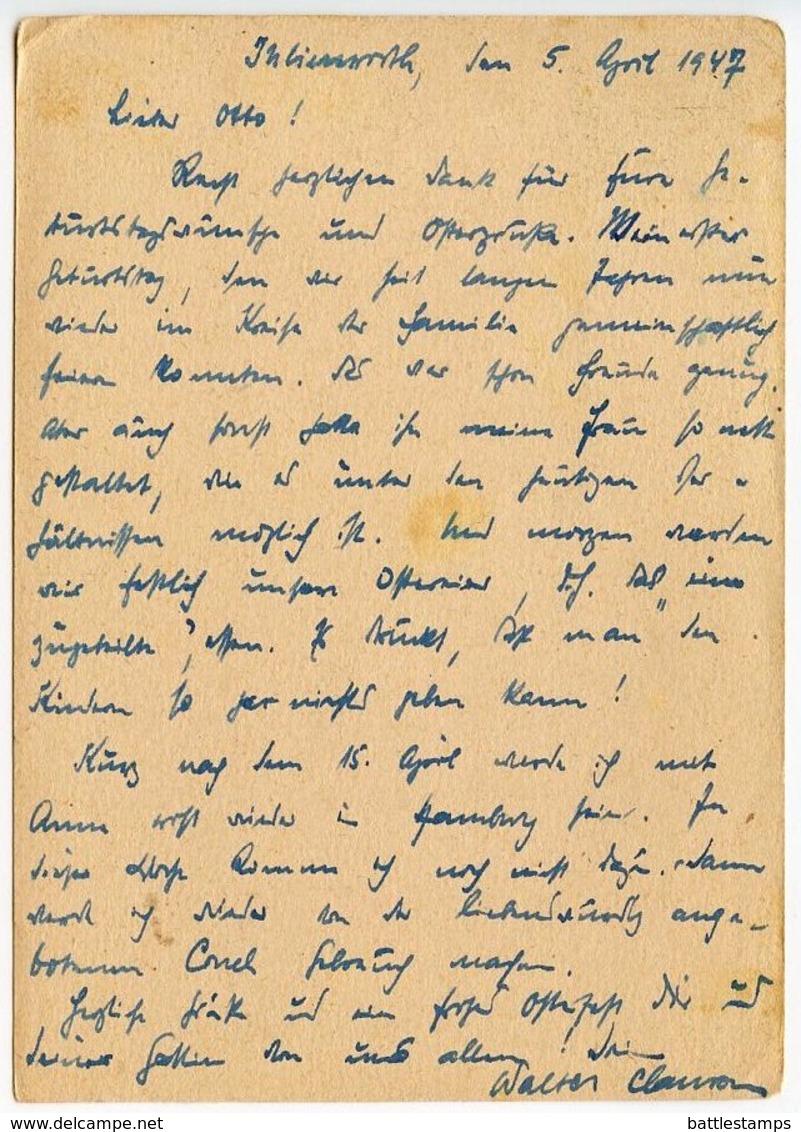 Ihlienworth, den 5. April 1947
Lieber Otto!
Recht herzlichen Dank für Eure Ge-
burtstagswünsche und Ostergrüße. Mein erster
Geburtstag, den wir seit langen Jahren nun
wieder im Kreise der Familie gemeinschaftlich
feiern konnten. Das war schon Freude genug.
Aber auch sonst hatte ihn meine Frau so nett
gestaltet, wie es unter den heutigen Ver-
hältnissen möglich ist. Und morgen werden
wir festlich unsere Ostereier, d.h. das "eine
zugeteilte", essen. Es drückt, daß man den
Kindern so gar nichts geben kann!
Kurz nach dem 15. April werde ich mit
erst wieder in Hamburg sein. In
dieser Woche komme ich noch nicht dazu. Dann
werde ich wieder von der liebenswürdig ange-
botenen Gebrauch machen.
Herzliche Grüße und ein frohes Osterfest Dir und
Deiner Gattin von uns allen! Dein
Walter
battlestamps